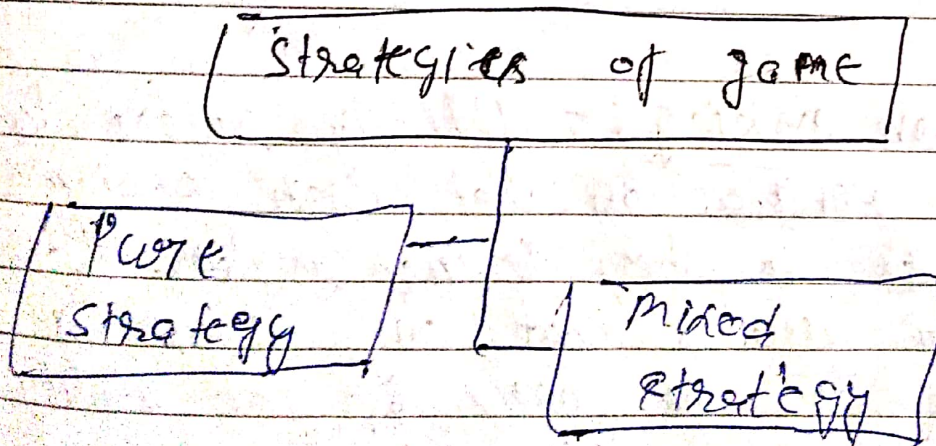 Strategies of game
Pure
strategy
Mixed
strategy